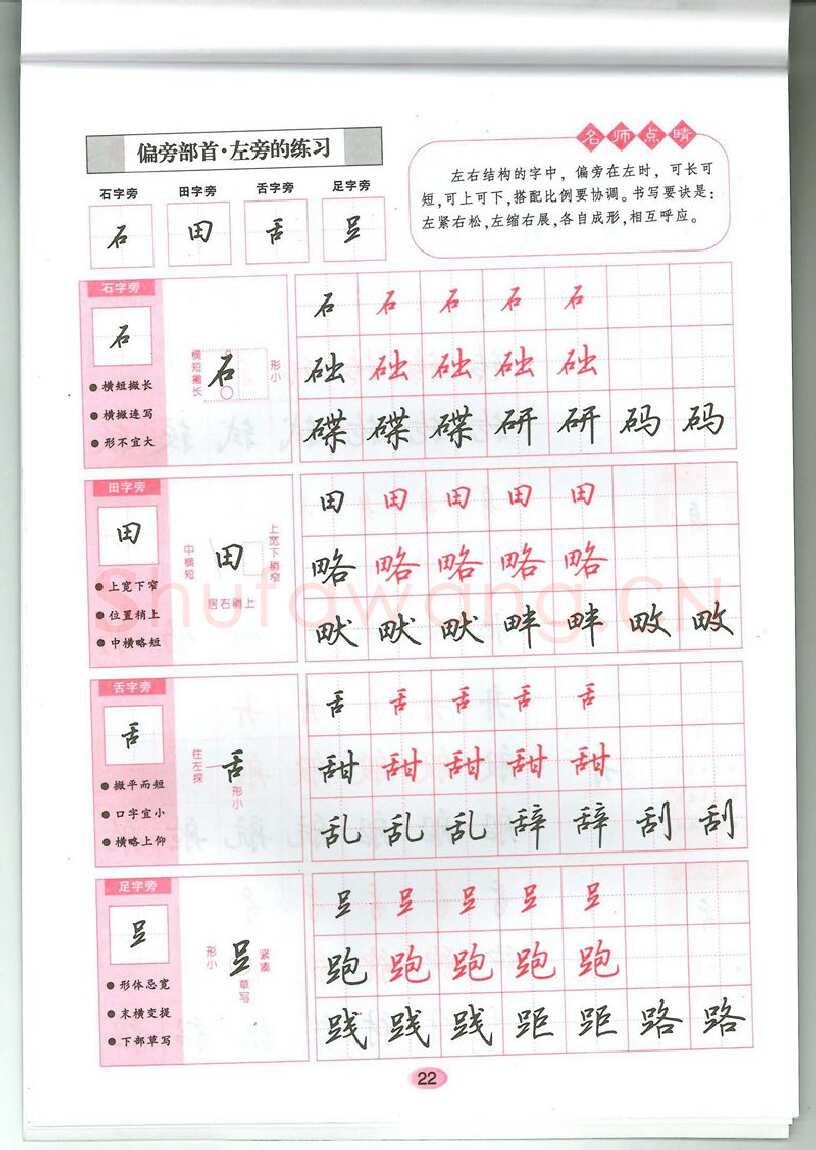 名师点睛
偏旁部首·左旁的练习
左右结构的字中，偏旁在左时，可长可
短，可上可下，搭配比例要协调。书写要诀是：
左紧右松，左缩右展，各自成形，相互呼应。
石字旁 田字旁 舌字旁 足字旁
石 田 舌 𧾷
石字旁
石
横短撇长
横撇连写
形不宜大
横短撇长
石
形小
石 石 石 石 石
础 础 础 础 础
碟 碟 碟 研 研 码 码
田字旁
田
上宽下窄
位置稍上
中横略短
中横短
田
上宽下稍窄
居右稍上
田 田 田 田 田
略 略 略 略 略
畎 畎 畎 畔 畔 畋 畋
舌字旁
舌
撇平而短
口字宜小
横略上仰
往左探
舌
形小
舌 舌 舌 舌 舌
甜 甜 甜 甜 甜
乱 乱 乱 辞 辞 刮 刮
足字旁
𧾷
形体忌宽
末横变提
下部草写
形小
𧾷
紧凑
草写
𧾷 𧾷 𧾷 𧾷 𧾷
跑 跑 跑 跑 跑
践 践 践 距 距 路 路
22
Shufawang.CN